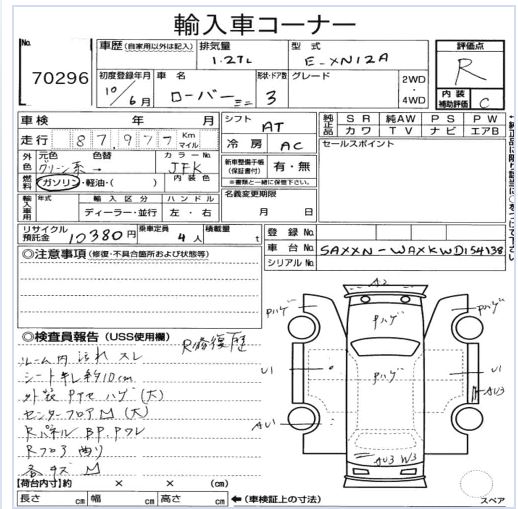 輸入車コーナー
No. 70296
車歴 (自家用以外は記入)
排気量 1.27L
型式 E-XN12A
評価点 R
初度登録年月 10/6月
車名 ローバーミニ
形状・ドア数 3
グレード
2WD・4WD
内装補助評価 C
車検 年 月
シフト AT
純正品 SR 純AW PS PW
カワ TV ナビ エアB
走行 87,977 Km マイル
冷房 AC
セールスポイント
外色 元色 グリーン系→ 色替
カラーNo. JFK
新車整備手帳(保証書付) 有・無
※書類と一緒に保管下さい。
燃料 ガソリン・軽油・( )
内装色
名義変更期限 月 日
輸入車用 年式 輸入区分 ハンドル
ディーラー・並行 左・右
リサイクル預託金 10380円
乗車定員 4人
積載量 t
登録No.
車台No. SAXXN-WAXKWD154138
シリアルNo.
◎注意事項 (修復・不具合箇所および状態等)
◎検査員報告 (USS使用欄)
R修復歴
ルーム内 汚れ スレ
シートキレ 約10cm
外装 Pイセ ハゲ (大)
センターフロア M (大)
Rパネル BP, Pワレ
Rフロア 曲り
各キズ M
A2
Pハゲ
Pハゲ
Pハゲ
Pハゲ
U1
U1
AU3
AU1
AU3 W3
スペア
【荷台内寸】約 × × (cm)
長さ cm 幅 cm 高さ cm
←(車検証上の寸法)